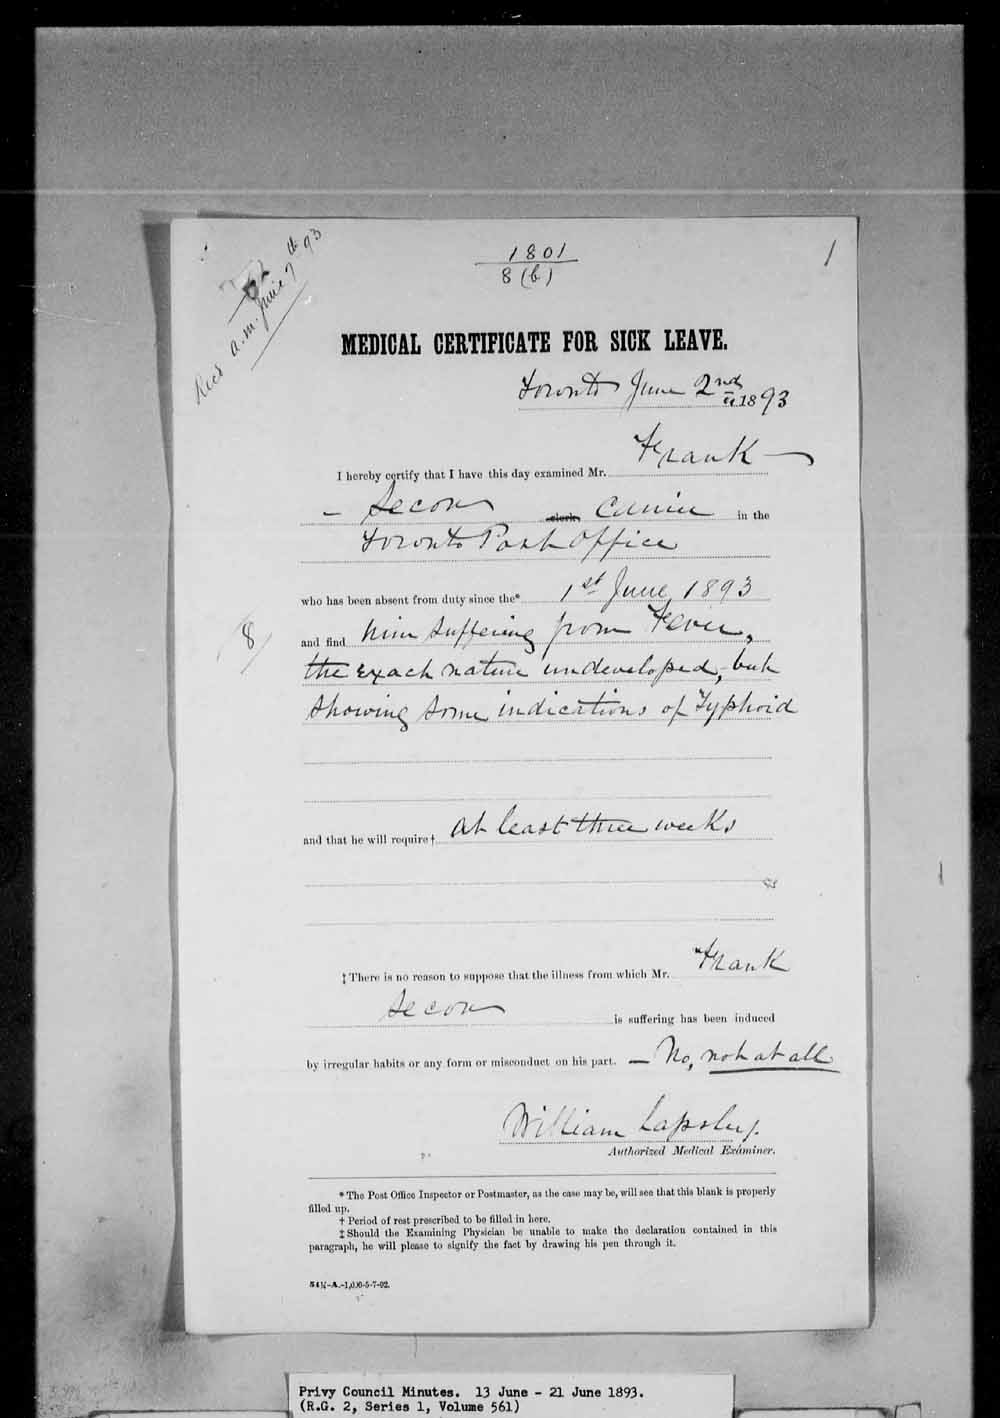 1801
8 (b)
1
Recd a.m. June 7th 93
MEDICAL CERTIFICATE FOR SICK LEAVE.
Toronto June 2nd 1893
I hereby certify that I have this day examined Mr. Frank —
– Secon clerk, Carrier in the
Toronto Post Office
who has been absent from duty since the* 1st June, 1893
8
and find him suffering from Fever,
the exact nature undeveloped, but
showing some indications of Typhoid
and that he will require † at least three weeks
‡ There is no reason to suppose that the illness from which Mr. Frank
Secon is suffering has been induced
by irregular habits or any form or misconduct on his part. — No, not at all
William Lapsley.
Authorized Medical Examiner.
* The Post Office Inspector or Postmaster, as the case may be, will see that this blank is properly
filled up.
† Period of rest prescribed to be filled in here.
‡ Should the Examining Physician be unable to make the declaration contained in this
paragraph, he will please to signify the fact by drawing his pen through it.
54½-A.-1,000-5-7-92.
Privy Council Minutes. 13 June - 21 June 1893.
(R.G. 2, Series 1, Volume 561)